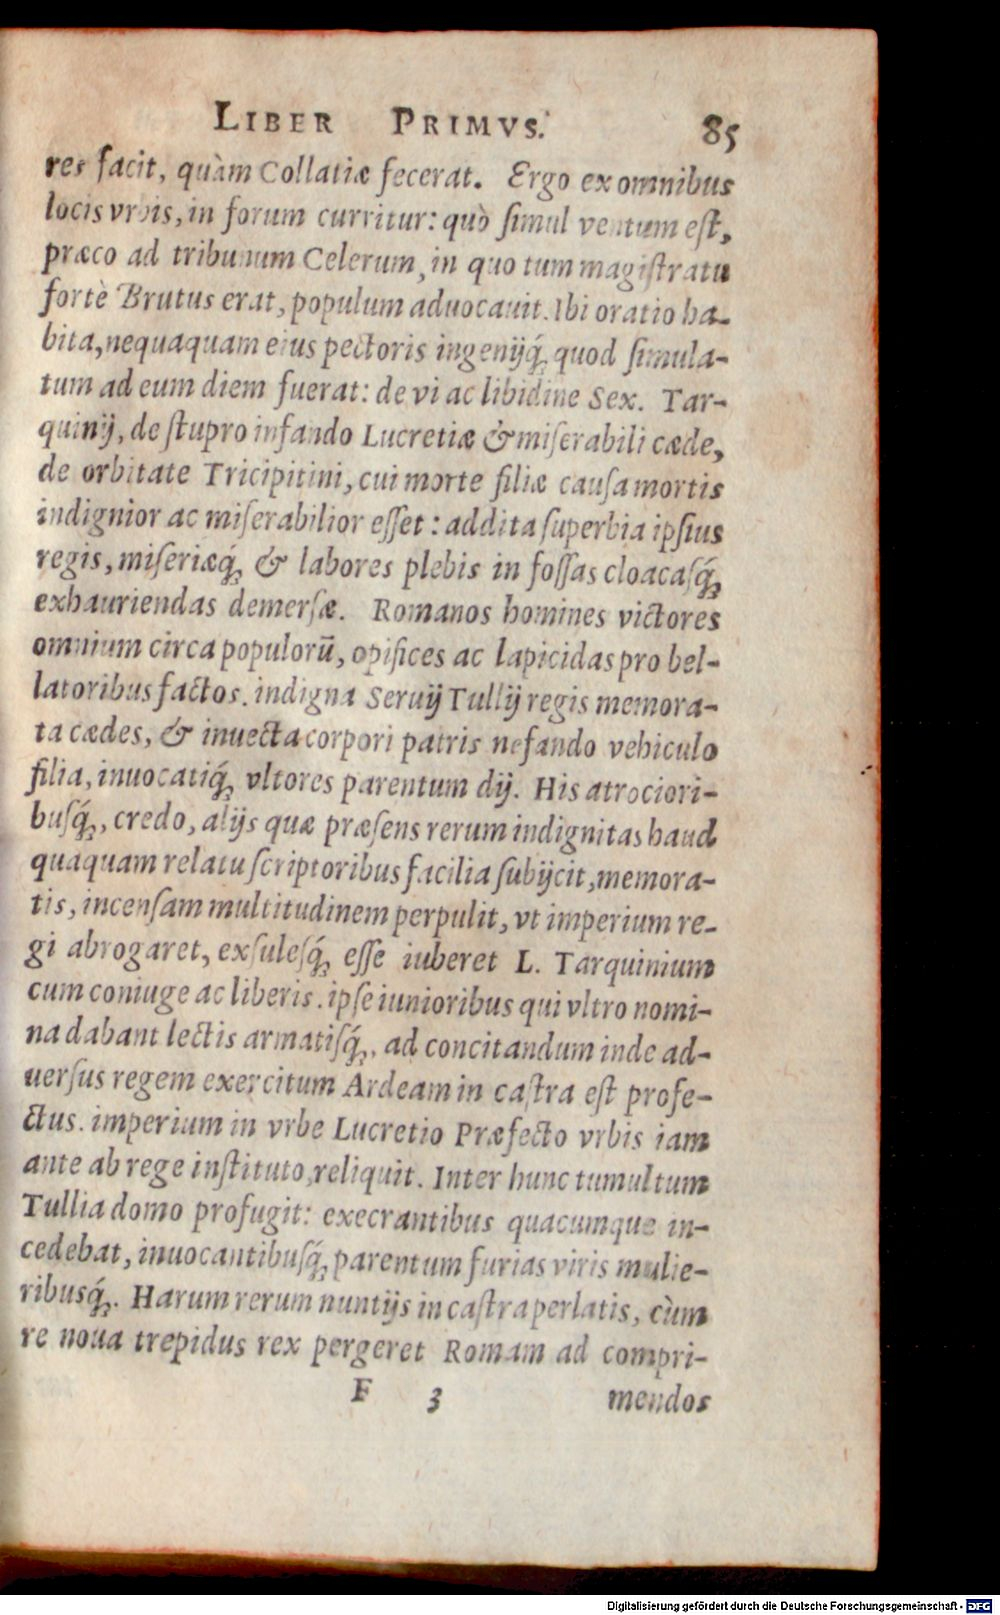 LIBER PRIMVS. 85
res facit, quàm Collatiæ fecerat. Ergo ex omnibus
locis vrbis, in forum curritur: quò ſimul ventum eſt,
præco ad tribunum Celerum, in quo tum magiſtratu
fortè Brutus erat, populum aduocauit. Ibi oratio ha-
bita, nequaquam eius pectoris ingenijq́; quod ſimula-
tum ad eum diem fuerat: de vi ac libidine Sex. Tar-
quinij, de ſtupro infando Lucretiæ & miſerabili cæde,
de orbitate Tricipitini, cui morte filiæ cauſa mortis
indignior ac miſerabilior eſſet: addita ſuperbia ipſius
regis, miſeriæq́; & labores plebis in foſſas cloacaſq́;
exhauriendas demerſæ. Romanos homines victores
omnium circa populorū, opifices ac lapicidas pro bel-
latoribus factos. indigna Seruij Tullij regis memora-
ta cædes, & inuecta corpori patris nefando vehiculo
filia, inuocatiq́; vltores parentum dij. His atrociori-
buſq́;, credo, alijs quæ præſens rerum indignitas haud
quaquam relatu ſcriptoribus facilia ſubijcit, memora-
tis, incenſam multitudinem perpulit, vt imperium re-
gi abrogaret, exſuleſq́; eſſe iuberet L. Tarquinium
cum coniuge ac liberis. ipſe iunioribus qui vltro nomi-
na dabant lectis armatiſq́;, ad concitandum inde ad-
uerſus regem exercitum Ardeam in caſtra eſt profe-
ctus. imperium in vrbe Lucretio Præfecto vrbis iam
ante ab rege inſtituto, reliquit. Inter hunc tumultum
Tullia domo profugit: execrantibus quacumque in-
cedebat, inuocantibuſq́; parentum furias viris mulie-
ribusq́;. Harum rerum nuntijs in caſtra perlatis, cùm
re noua trepidus rex pergeret Romam ad compri-
F 3 mendos
Digitalisierung gefördert durch die Deutsche Forschungsgemeinschaft - DFG